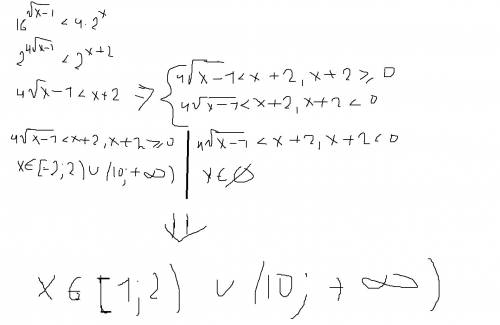 16^√x-1 < 4·2^x
2^4√x-1 < 2^x+2
4√x-1 < x+2 => { 4√x-1 < x+2, x+2 ≥ 0
4√x-1 < x+2, x+2 < 0
4√x-1 < x+2, x+2 ≥ 0 | 4√x-1 < x+2, x+2 < 0
x∈[-2;2) ∪ (10;+∞) | x∈∅
⇓
x∈[1;2) ∪ (10;+∞)